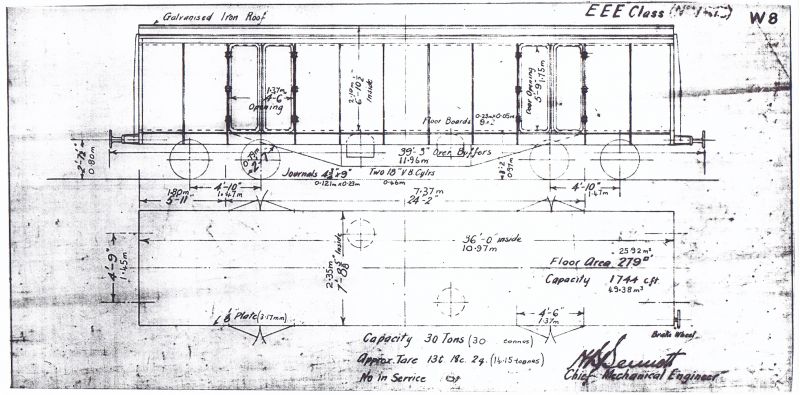 Galvanised Iron Roof
EEE Class
W8
1.37m
4'-6"
Opening
6'-10½"
Inside
Door Opening
5'-9"
1.75m
Floor Boards
39'-3" Over Buffers
11.96m
0.80m
Journals 4¾"x9"
0.121m x 0.23m
Two 18" V.B. Cylrs
0.46m
0.97m
1.80m
5'-11"
4'-10"
1.47m
7.37m
24'-2"
4'-10"
1.47m
36'-0" inside
10.97m
4'-9"
1.45m
2.35m
Inside
25.92m²
Floor Area 279
Capacity 1744 cft
49.38m³
4'-6"
1.37m
Plate (3.17mm)
Brake Wheel
Capacity 30 Tons (30 tonnes)
Approx. Tare 13t. 18c. 2q. (14.15 tonnes)
No in Service
Chief Mechanical Engineer